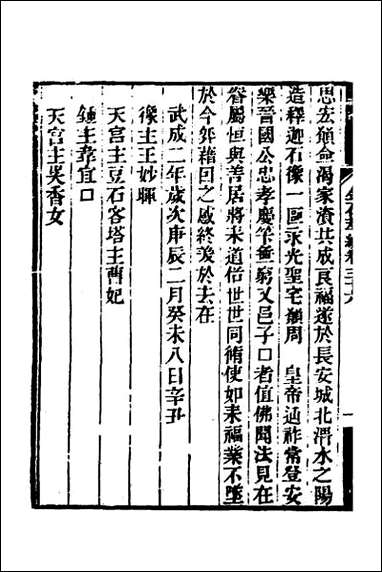 思宏願僉渴家資共成良福遂於長安城北渭水之陽
造釋迦石像一區永光聖宅願周　皇帝延祚常登安
樂晉國公忠孝慶筭無窮又邑子口者值佛聞法見在
眷屬恒與善居將來道俗世世同脩使如來福業不墜
於今身藉因之感終美於去在
武成二年歲次庚辰二月癸未八日辛丑
像主王妙暉
天宮主豆石客塔主曹妃
鍾主韋宜口
天宮主吳香女